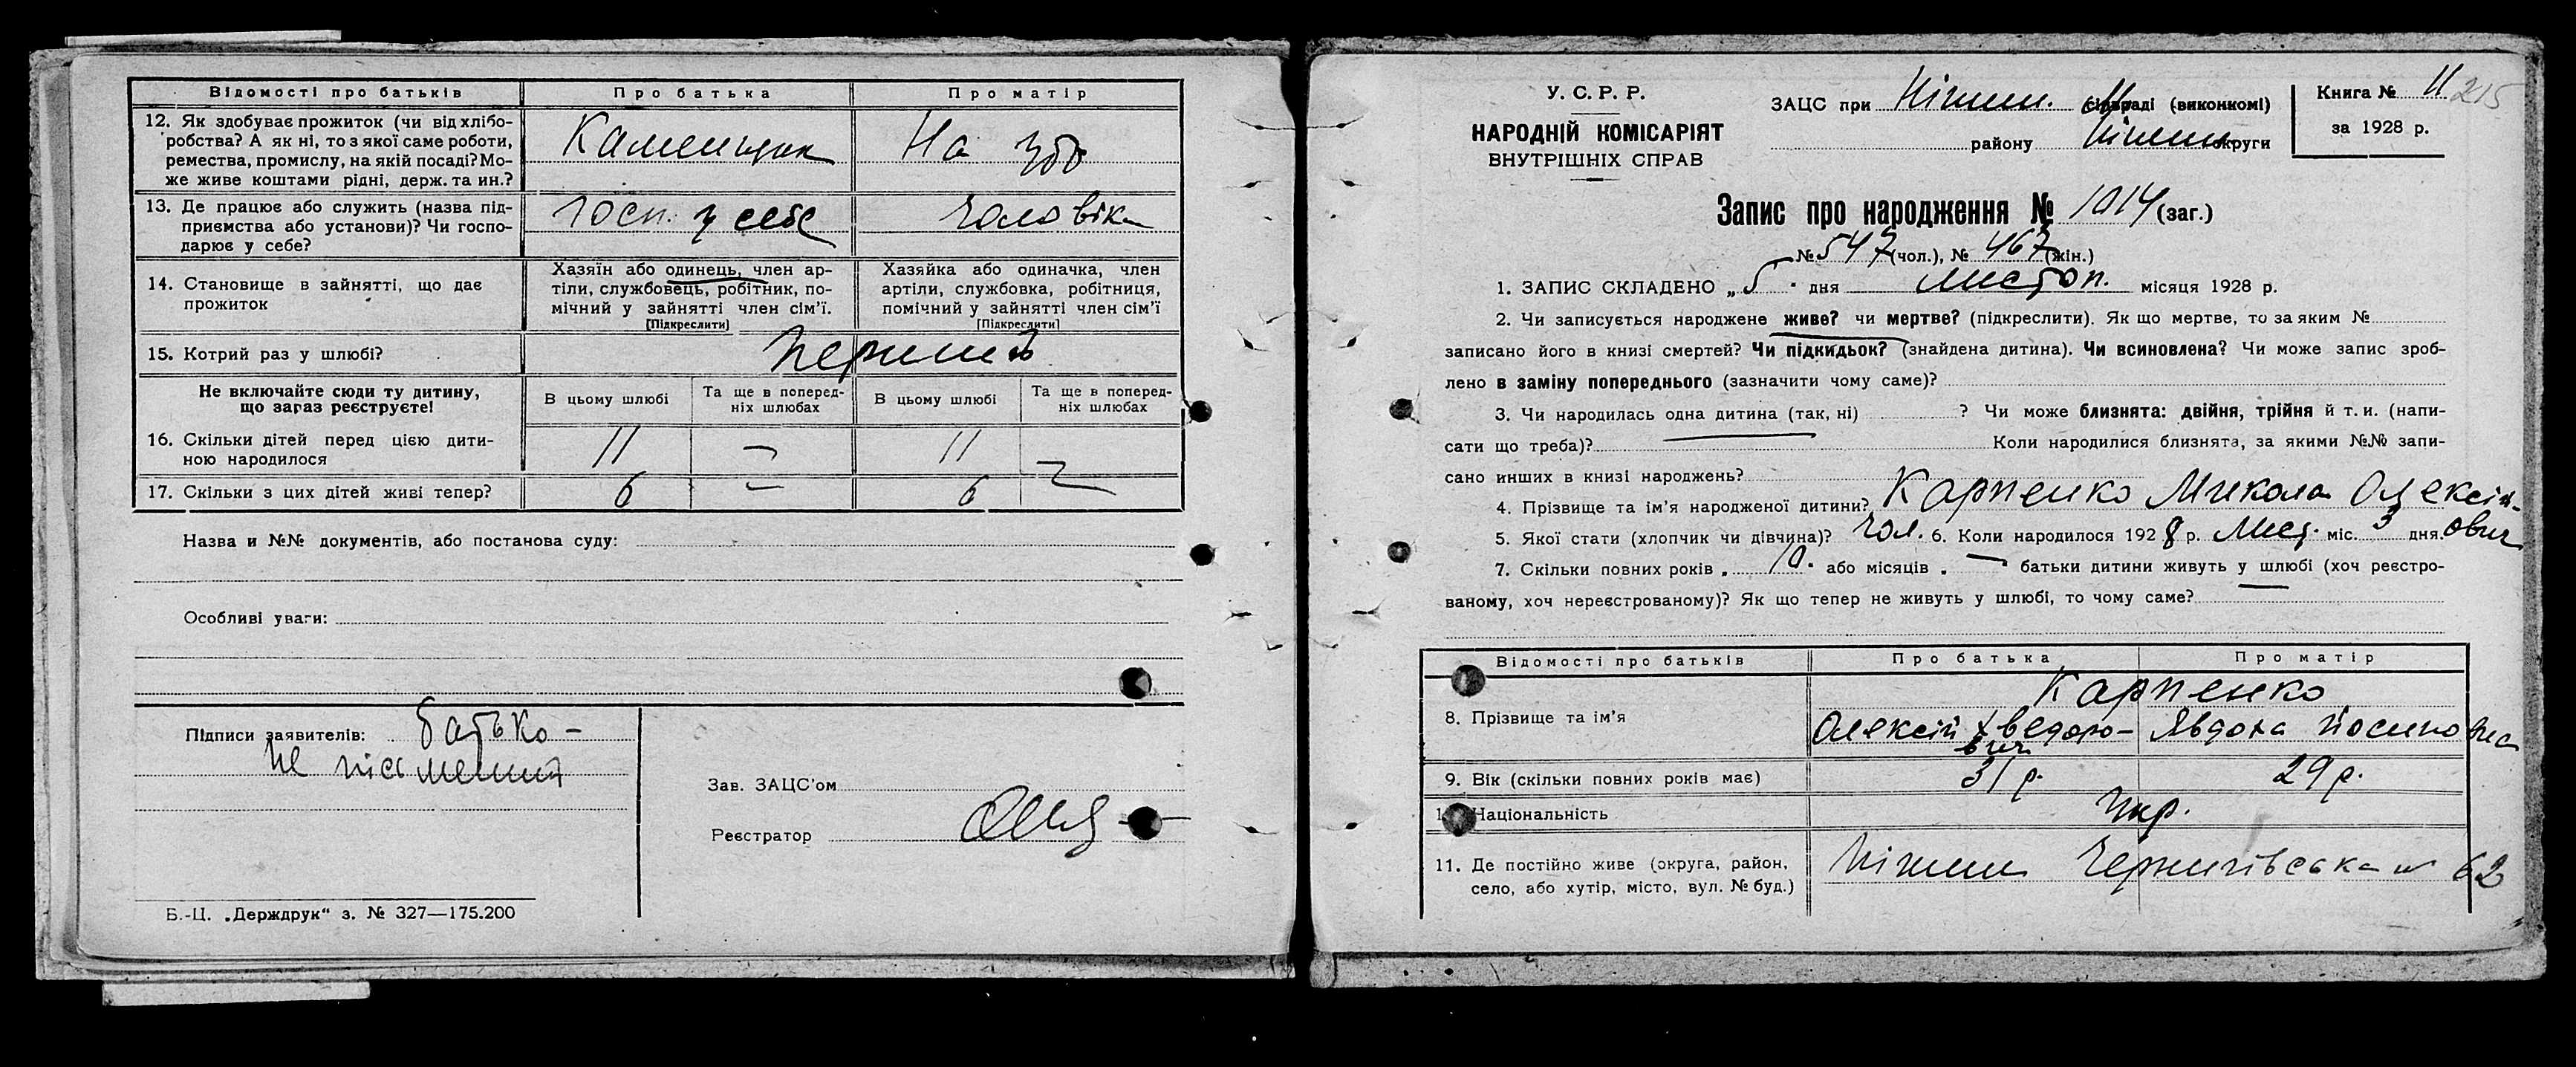 Відомості про батьків Про батька Про матір
12. Як здобуває прожиток (чи від хлібо-
робства? А як ні, то з якої саме роботи,
ремества, промислу, на якій посаді? Мо-
же живе коштами рідні, держ. та ин.?
Каменщик На
13. Де працює або служить (назва під-
приємства або установи)? Чи госпо-
дарює у себе?
Госп. у себе чоловіка
14. Становище в зайнятті, що дає
прожиток
Хазяїн або одинець, член ар-
тіли, службовець, робітник, по-
мічний у зайнятті член сім'ї.
[Підкреслити]
Хазяйка або одиначка, член
артіли, службовка, робітниця,
помічний у зайнятті член сім'ї
[Підкреслити]
15. Котрий раз у шлюбі?
Не включайте сюди ту дитину,
що зараз реєструєте!
В цьому шлюбі Та ще в поперед-
ніх шлюбах В цьому шлюбі Та ще в поперед-
ніх шлюбах
16. Скільки дітей перед цією дити-
ною народилося
11 — 11 —
17. Скільки з цих дітей живі тепер? 6 — 6 —
Назва и №№ документів, або постанова суду:
Особливі уваги:
Підписи заявителів: батько –
не письменний
Зав. ЗАЦС'ом
Реєстратор
Б.-Ц. „Держдрук“ з. № 327—175.200
У. С. Р. Р.
НАРОДНІЙ КОМІСАРІЯТ
ВНУТРІШНІХ СПРАВ
ЗАЦС при Ніжин. сільраді (виконкомі)
району Ніжин округи
Книга № 11 215
за 1928 р.
Запис про народження № 1014 (заг.)
№ 547 (чол.), № 467 (жін.)
1. ЗАПИС СКЛАДЕНО „5" дня листоп. місяця 1928 р.
2. Чи записується народжене живе? чи мертве? (підкреслити). Як що мертве, то за яким №
записано його в книзі смертей? Чи підкидьок? (знайдена дитина). Чи всиновлена? Чи може запис зроб-
лено в заміну попереднього (зазначити чому саме)?
3. Чи народилась одна дитина (так, ні) ? Чи може близнята: двійня, трійня й т. и. (напи-
сати що треба)? Коли народилися близнята, за якими №№ запи-
сано инших в книзі народжень?
4. Прізвище та ім'я народженої дитини? Карпенко Микола Олексій-
ович
5. Якої стати (хлопчик чи дівчина)? чол. 6. Коли народилося 1928 р. лист. міс. 3 дня.
7. Скільки повних років „ 10 " або місяців „ — батьки дитини живуть у шлюбі (хоч реєстро-
ваному, хоч нереєстрованому)? Як що тепер не живуть у шлюбі, то чому саме?
Відомості про батьків Про батька Про матір
8. Прізвище та ім'я
Карпенко
Олексій Хведоро-
вич
Явдоха Йосиповна
9. Вік (скільки повних років має) 31 р. 29 р.
Національність Укр.
11. Де постійно живе (округа, район,
село, або хутір, місто, вул. № буд.)
Ніжин Чернигівська № 62